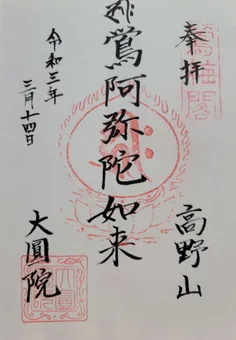 奉拝
高野山
鶯阿弥陀如来
令和三年
三月十四日
大圓院